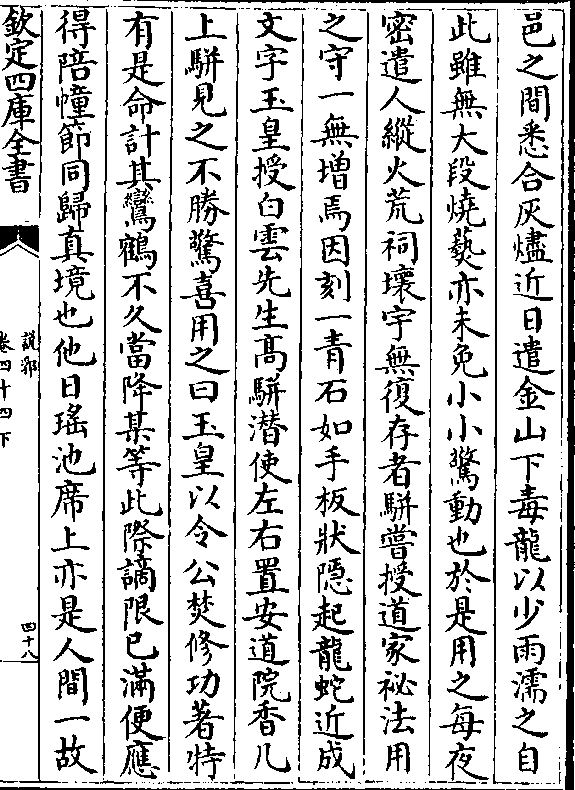 邑之間悉合灰燼近日遣金山下毒龍以少雨濡之自
此雖無大段燒爇亦未免小小驚動也於是用之每夜
密遣人縱火荒祠壞宇無復存者駢嘗授道家祕法用
之守一無增焉因刻一青石如手板狀隱起龍蛇近成
文字玉皇授白雲先生髙駢潜使左右置安道院香几
上駢見之不勝驚喜用之曰玉皇以令公焚修功著特
有是命計其鸞鶴不久當降某等此際謫限已滿便應
得陪幢節同歸真境也他日瑤池席上亦是人間一故
欽定四庫全書
說郛
卷四十四下
四十八